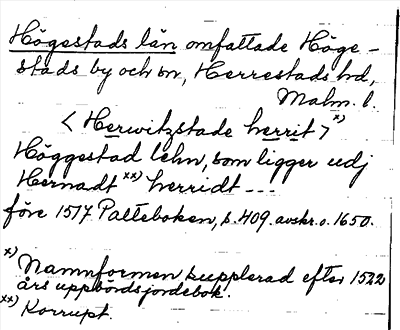 Högestads län omfattade Höge-
stads by och sn, Herrestads hd,
Malm. l.
< Herwitzstade herrit > x)
Höggestad lehn, som ligger udj
Hernadt xx) herridt ---
före 1517 Palteboken, s. 409. avskr. o. 1650.
x) Namnformen supplerad efter 1522
års uppbördsjordebok.
xx) Korrupt.